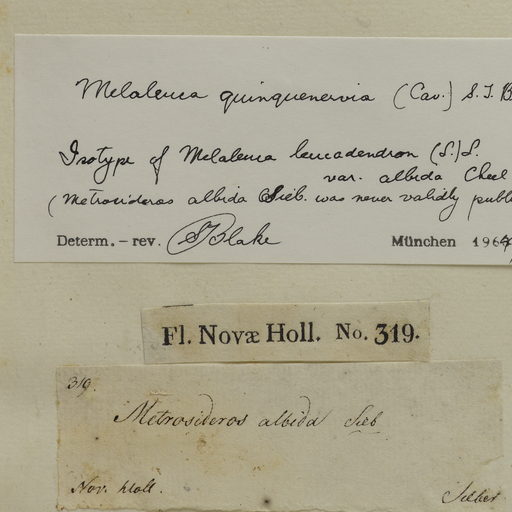 Melaleuca quinquenervia (Cav.) S.T. B
Isotype of Melaleuca leucadendron (L.) L.
var. albida Cheel
(Metrosideros albida Sieb. was never validly publ
Determ. – rev. STBlake München 1964
Fl. Novæ Holl. No. 319.
319.
Metrosideros albida Sieb
Nov. Holl. Sieber